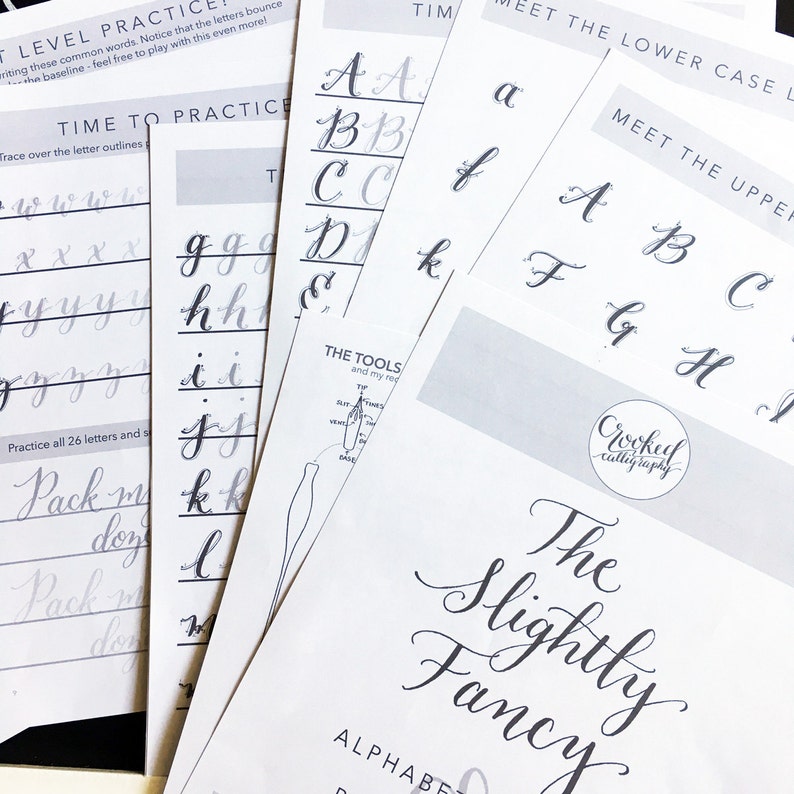 T LEVEL PRACTICE!
writing these common words. Notice that the letters bounce
the baseline - feel free to play with this even more!
TIME TO PRACTICE
Trace over the letter outlines
w w w w w
x x x x
y y y y y
z z z z z
Practice all 26 letters and
Pack m
doze
Pack m
doze
T
g g g
h h h
i i i
j j j
k k
l l
m
TIM
A A A
B B B
C C
D D
E
MEET THE LOWER CASE L
a
f
k
MEET THE UPPER
A B C
F G H
THE TOOLS
and my rec
TIP
SLIT TINES
VENT SH
BASE
Crooked
calligraphy
The
Slightly
Fancy
ALPHABET